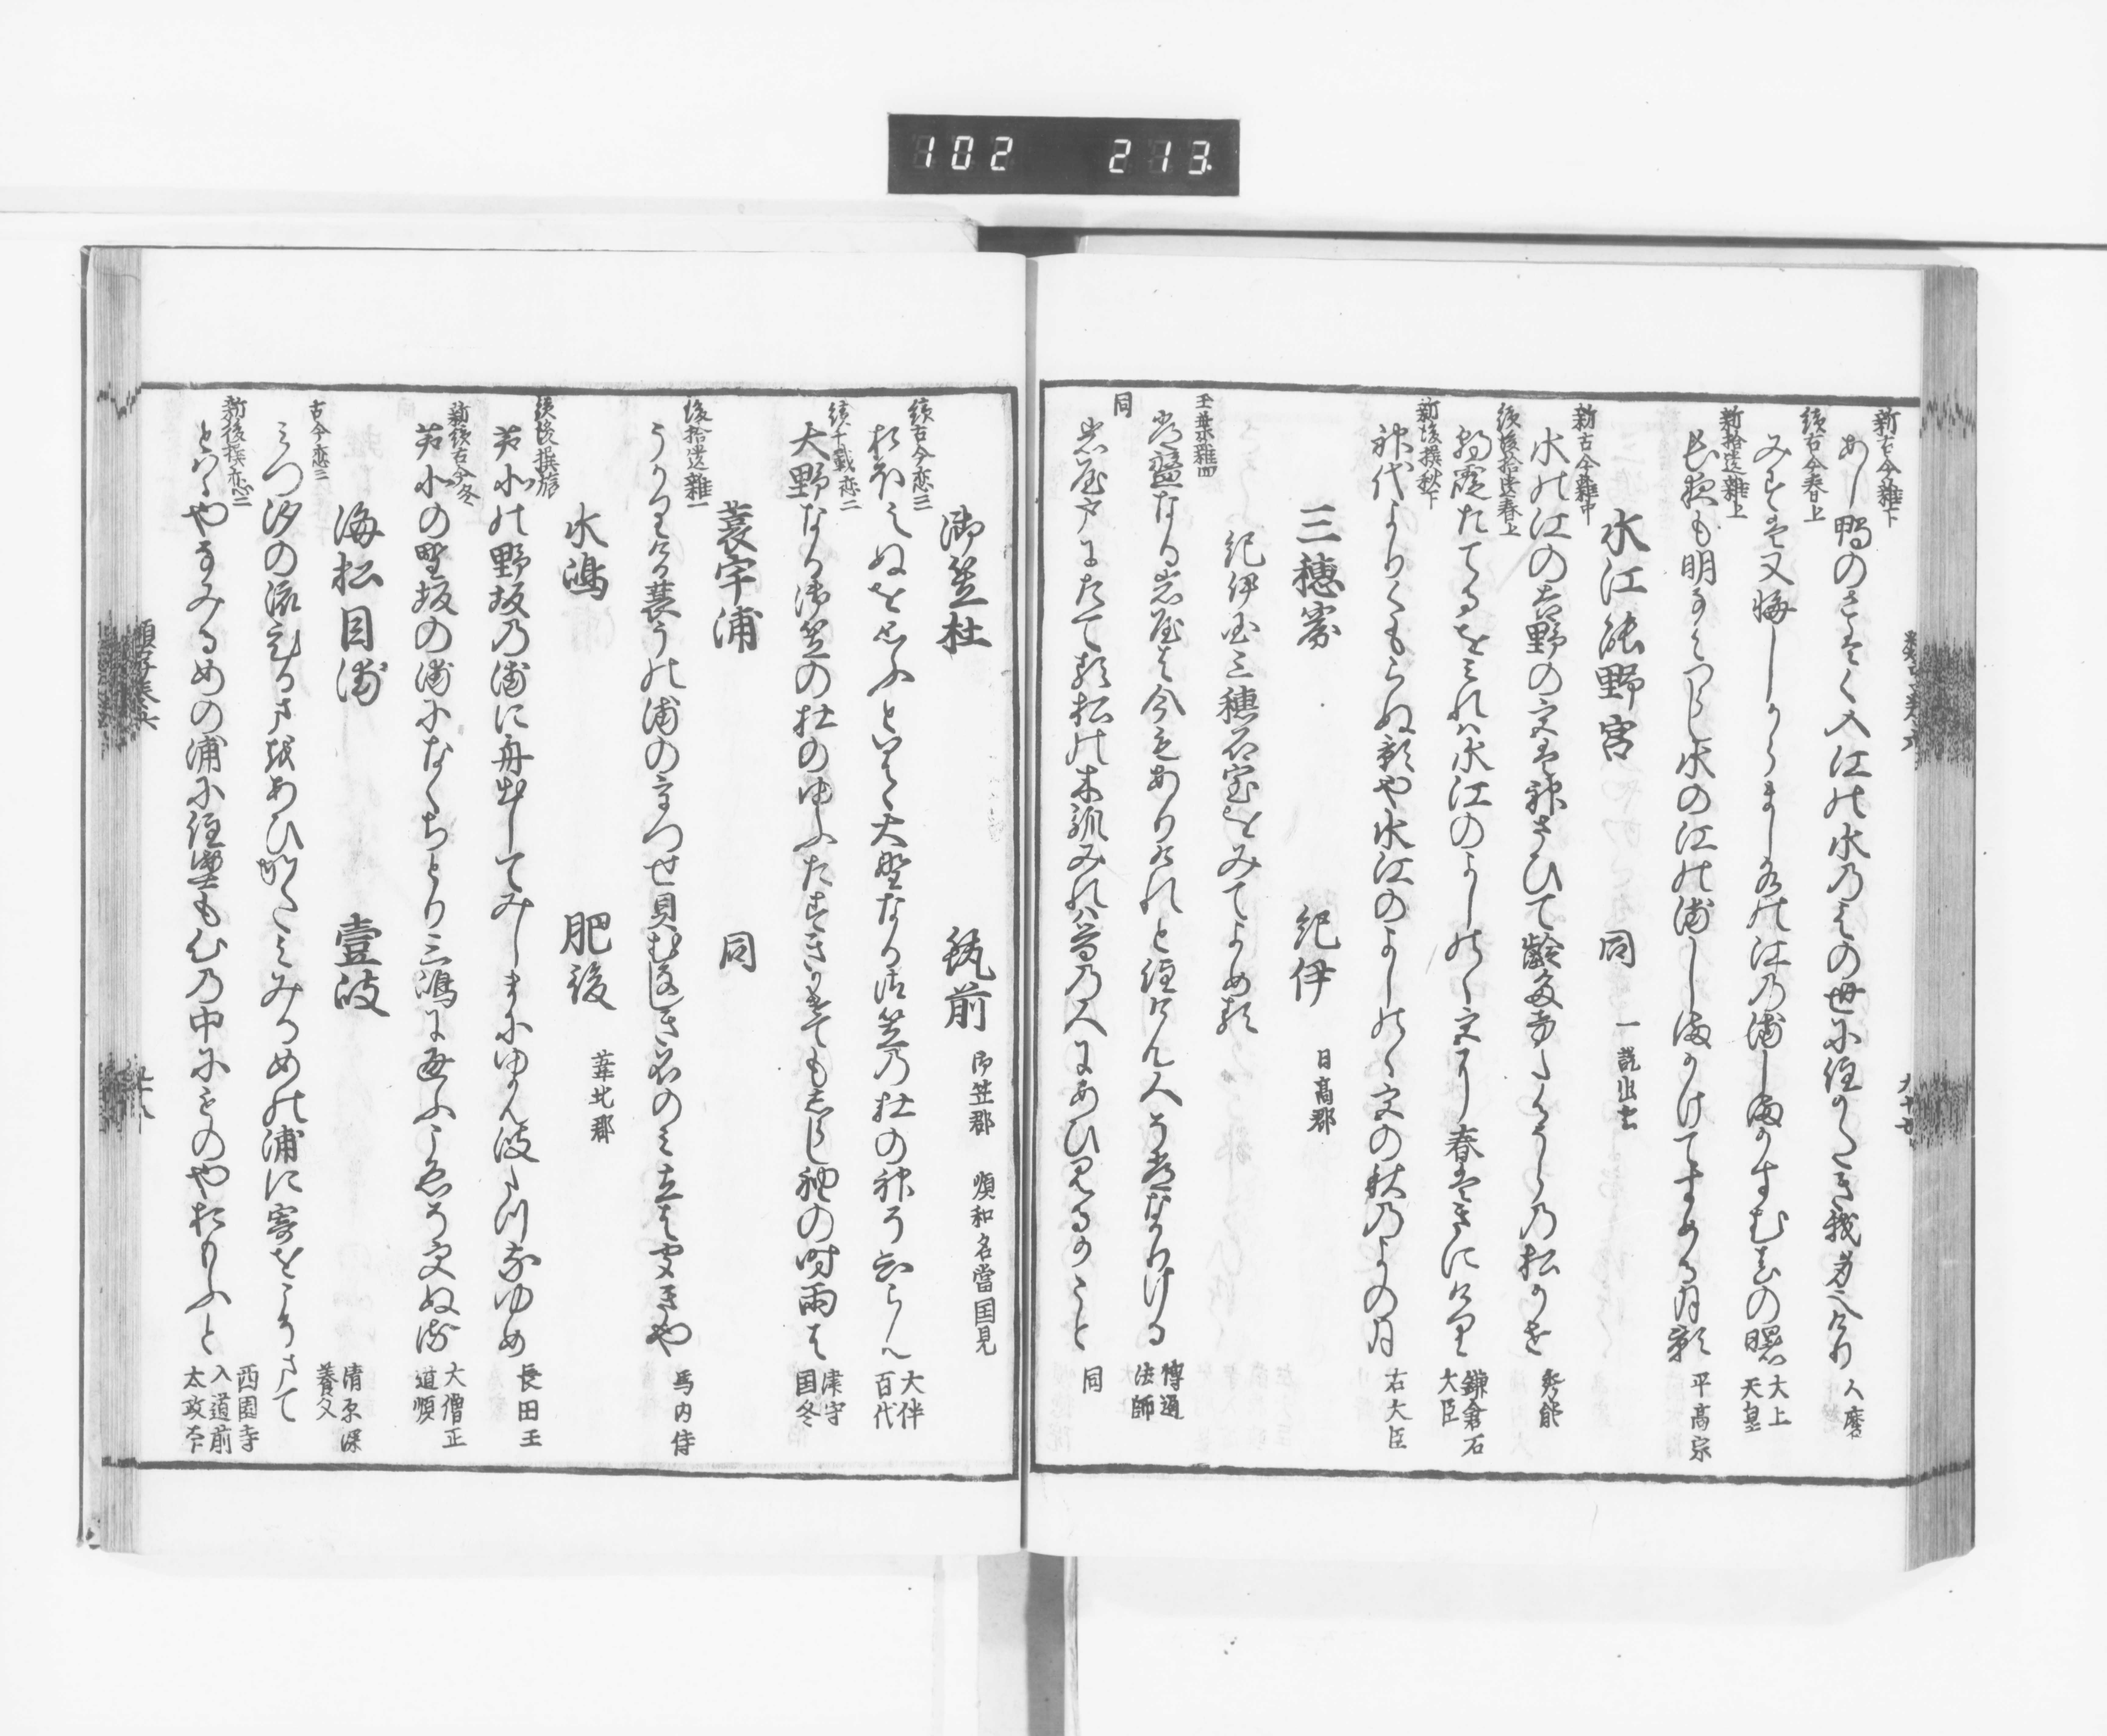 102 213
新古今雜下
あし鴨のさはく入江の水乃えの世に住かたき我身也けり 人麿
續古今春上
みすは又悔しからまし水の江乃浦しまかすむ春の曙 太上天皇
新拾遺雜上
長夜も明すはつらし水の江の浦しまかけてすめる月影 平高宗
水江能野宮 同 一説出雲
新古今雜中
水の江のよし野の宮は神さひて齢たけたるうらの松かせ 秀能
續後拾遺春上
朝霞たてるをみれは水江のよしのゝ宮に春はきにけり 鎌倉右大臣
新後撰秋下
神代よりくもらぬ影や水江のよしのゝ宮の秋乃よの月 右大臣
三穂窟 紀伊 日高郡
紀伊国三穂石室をみてよめる
玉葉雜四
常盤なる岩屋は今もありけれと住けん人そ常なかりける 博通法師
同
岩屋戸にたてる松の木汝みれは昔乃人にあひみるかこと 同
御笠杜 筑前 御笠郡 順和名當国見
續古今恋三
おもはぬを思ふといはゝ大野なる御笠乃杜の神そしらん 大伴百代
續千載恋二
大野なる御笠の杜のゆふたすきかけてもしらし袖の時雨は 津守国冬
蓑宇浦 同
後拾遺雜一
うかりける蓑うの浦のうつせ貝むなしき名のみ立はきゝきや 馬内侍
水嶋 肥後 葦北郡
續後撰旅
芦北の野坂乃浦に舟出してみしまにゆかん波たつなゆめ 長田王
新續古今冬
芦北の野坂の浦になくちとり三嶋に通ふこゑそ更ぬる 大僧正道順
海松目浦 壹岐
古今恋三
みつ汐の流ひるまをあひかたみみるめの浦に寄をこそまて 清原深養父
新後撰恋二
とはゝやなみるめの浦に住蜑も心乃中にものやおもふと 西園寺入道前太政大